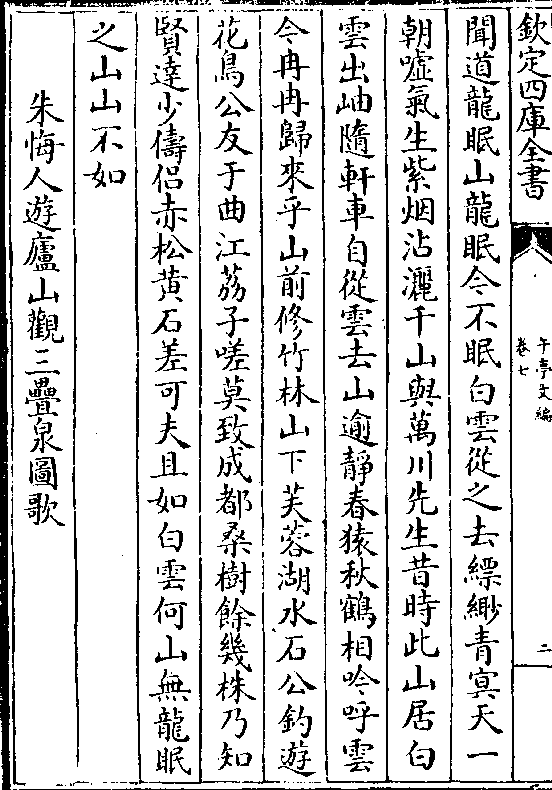 欽定四庫全書
午亭文編
卷七
二
聞道龍眠山龍眠今不眠白雲從之去縹緲青冥天一
朝噓氣生紫烟沾灑千山與萬川先生昔時此山居白
雲出岫隨軒車自從雲去山逾靜春猿秋鶴相吟呼雲
今冉冉歸來乎山前修竹林山下芙蓉湖水石公釣遊
花鳥公友于曲江荔子嗟莫致成都桑樹餘幾株乃知
賢達少儔侶赤松黄石差可夫且如白雲何山無龍眠
之山山不如
朱悔人遊廬山觀三疊泉圖歌